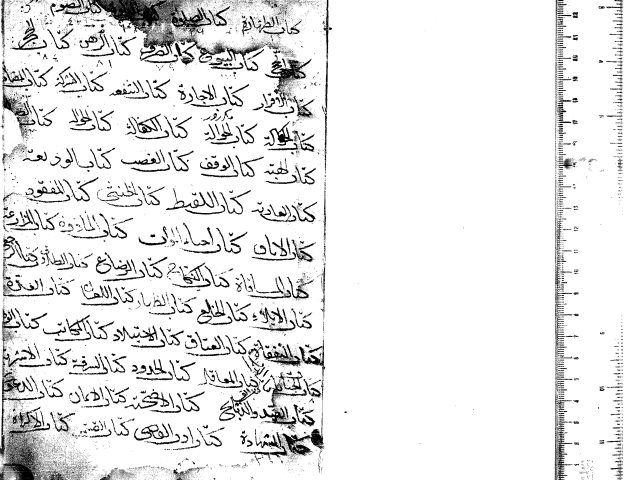 كتاب الطهارة كتاب الصلوة كتاب الصوم
كتاب الحج كتاب البيوع كتاب الصرف كتاب الرهن كتاب الحجر
كتاب الاقرار كتاب الاجارة كتاب الشفعه كتاب الشركة كتاب المضاربة
كتاب الوكالة كتاب الكفالة كتاب الحوالة كتاب
كتاب الهبه كتاب الوقف كتاب الغصب كتاب الوديعه
كتاب العاريه كتاب اللقيط كتاب الخنثى كتاب المفقود
كتاب الاباق كتاب احياء الموات كتاب الماذون كتاب المزارعة
كتاب المساقاة كتاب النكاح كتاب الرضاع كتاب الطلاق كتاب الرجعة
كتاب الايلاء كتاب الخلع كتاب الظهار كتاب اللعان كتاب العدة
كتاب النفقات كتاب العتاق كتاب الاستيلاد كتاب المكاتب كتاب
كتاب الجنايات كتاب المعاقل كتاب الحدود كتاب السرقة كتاب الاشربة
كتاب الصيد والذبايح كتاب الاضحية كتاب الايمان كتاب الدعوى
كتاب الشهادة كتاب ادب القاضي كتاب القسمة كتاب الاكراه